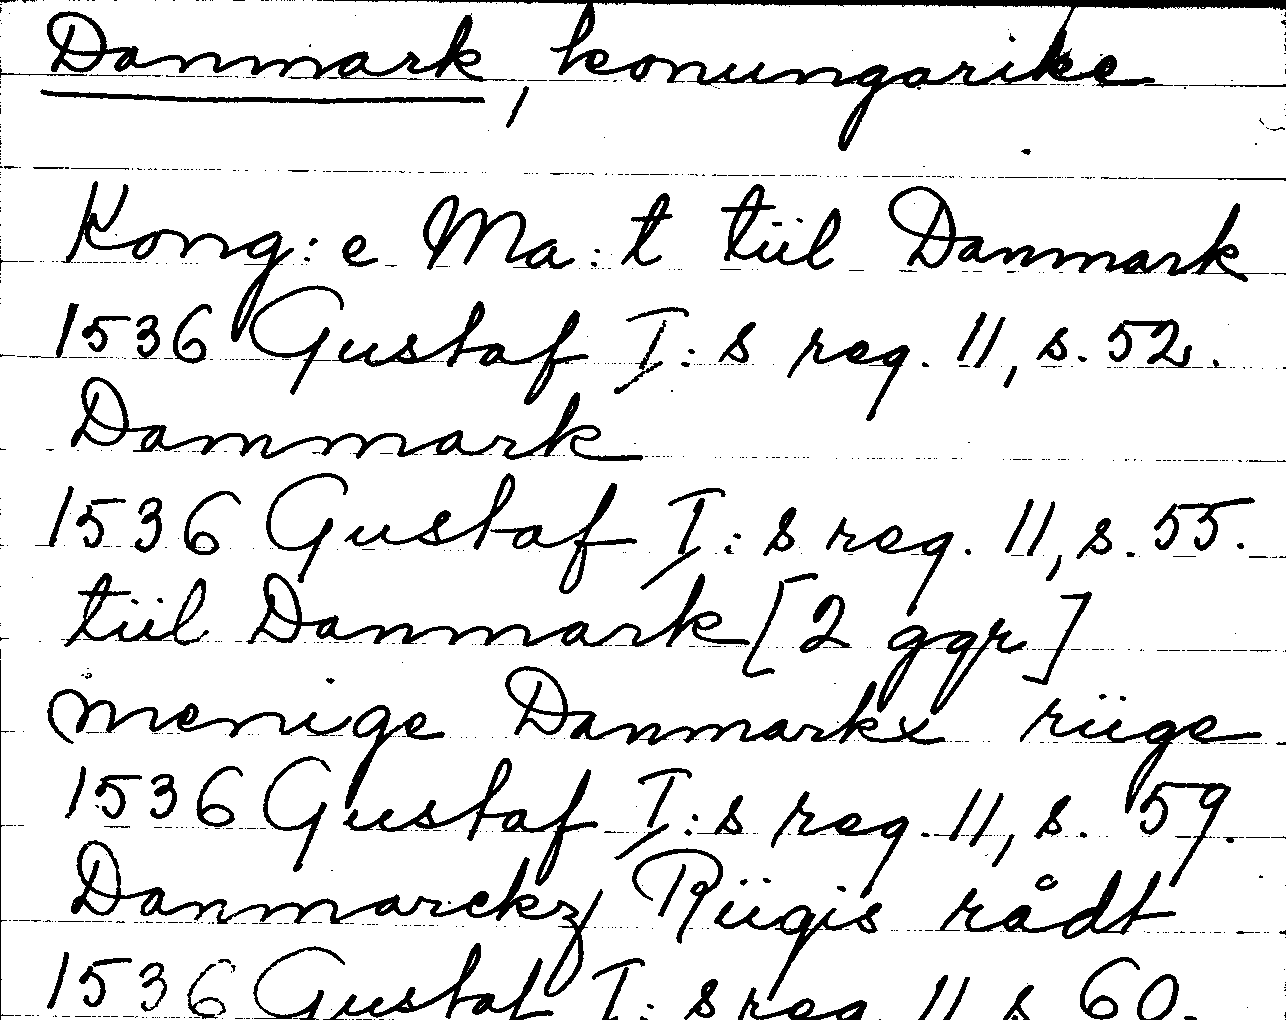 Danmark, konungarike
Kong:e Ma:t tiil Danmark
1536 Gustaf I:s reg. 11, s. 52.
Danmark
1536 Gustaf I:s reg. 11, s. 55.
tiil Danmark [2 ggr]
menige Danmarkx riige
1536 Gustaf I:s reg. 11, s. 59.
Danmarckz Riigis rådt
1536 Gustaf I:s reg 11 s 60.